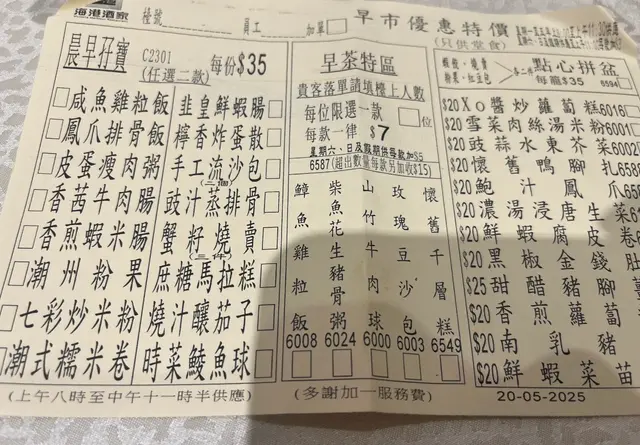 海港酒家
檯號
員工
加單
早市優惠特價
(只供堂食)
晨早孖寶
C2301
(任選二款)
每份$35
咸魚雞粒飯
鳳爪排骨飯
皮蛋瘦肉粥
香茜牛肉腸
香煎蝦米腸
潮州粉果
七彩炒米粉
潮式糯米卷
韭皇鮮蝦腸
檸香炸蛋散
手工流沙包
豉汁蒸排骨
蟹籽燒賣
(三件)
庶糖馬拉糕
燒汁釀茄子
時菜鯪魚球
(上午八時至中午十一時半供應)
早茶特區
貴客落單請填檯上人數
每位限選一款
位
每款一律 $7
星期六、日及假期供每款加$5
6587(超出數量每款另加收$15)
鱆魚雞粒飯 6008
柴魚花生豬骨粥 6024
山竹牛肉球 6000
玫瑰豆沙包 6003
懷舊千層糕 6549
(多謝加一服務費)
點心拼盆
每籠$35 6594
$20 Xo醬炒蘿蔔糕 6016
$20 雪菜肉絲湯米粉 6001
$20 豉蒜水東芥菜 6002
$20 懷舊鴨腳扎 658
$20 鮑汁鳳爪 656
$20 濃湯浸唐生菜
$20 鮮蝦腐皮卷
$20 黑椒金錢肚
$25 甜醋豬腳
$20 香煎蘿蔔
$20 南乳豬
$20 鮮蝦菜苗
20-05-2025